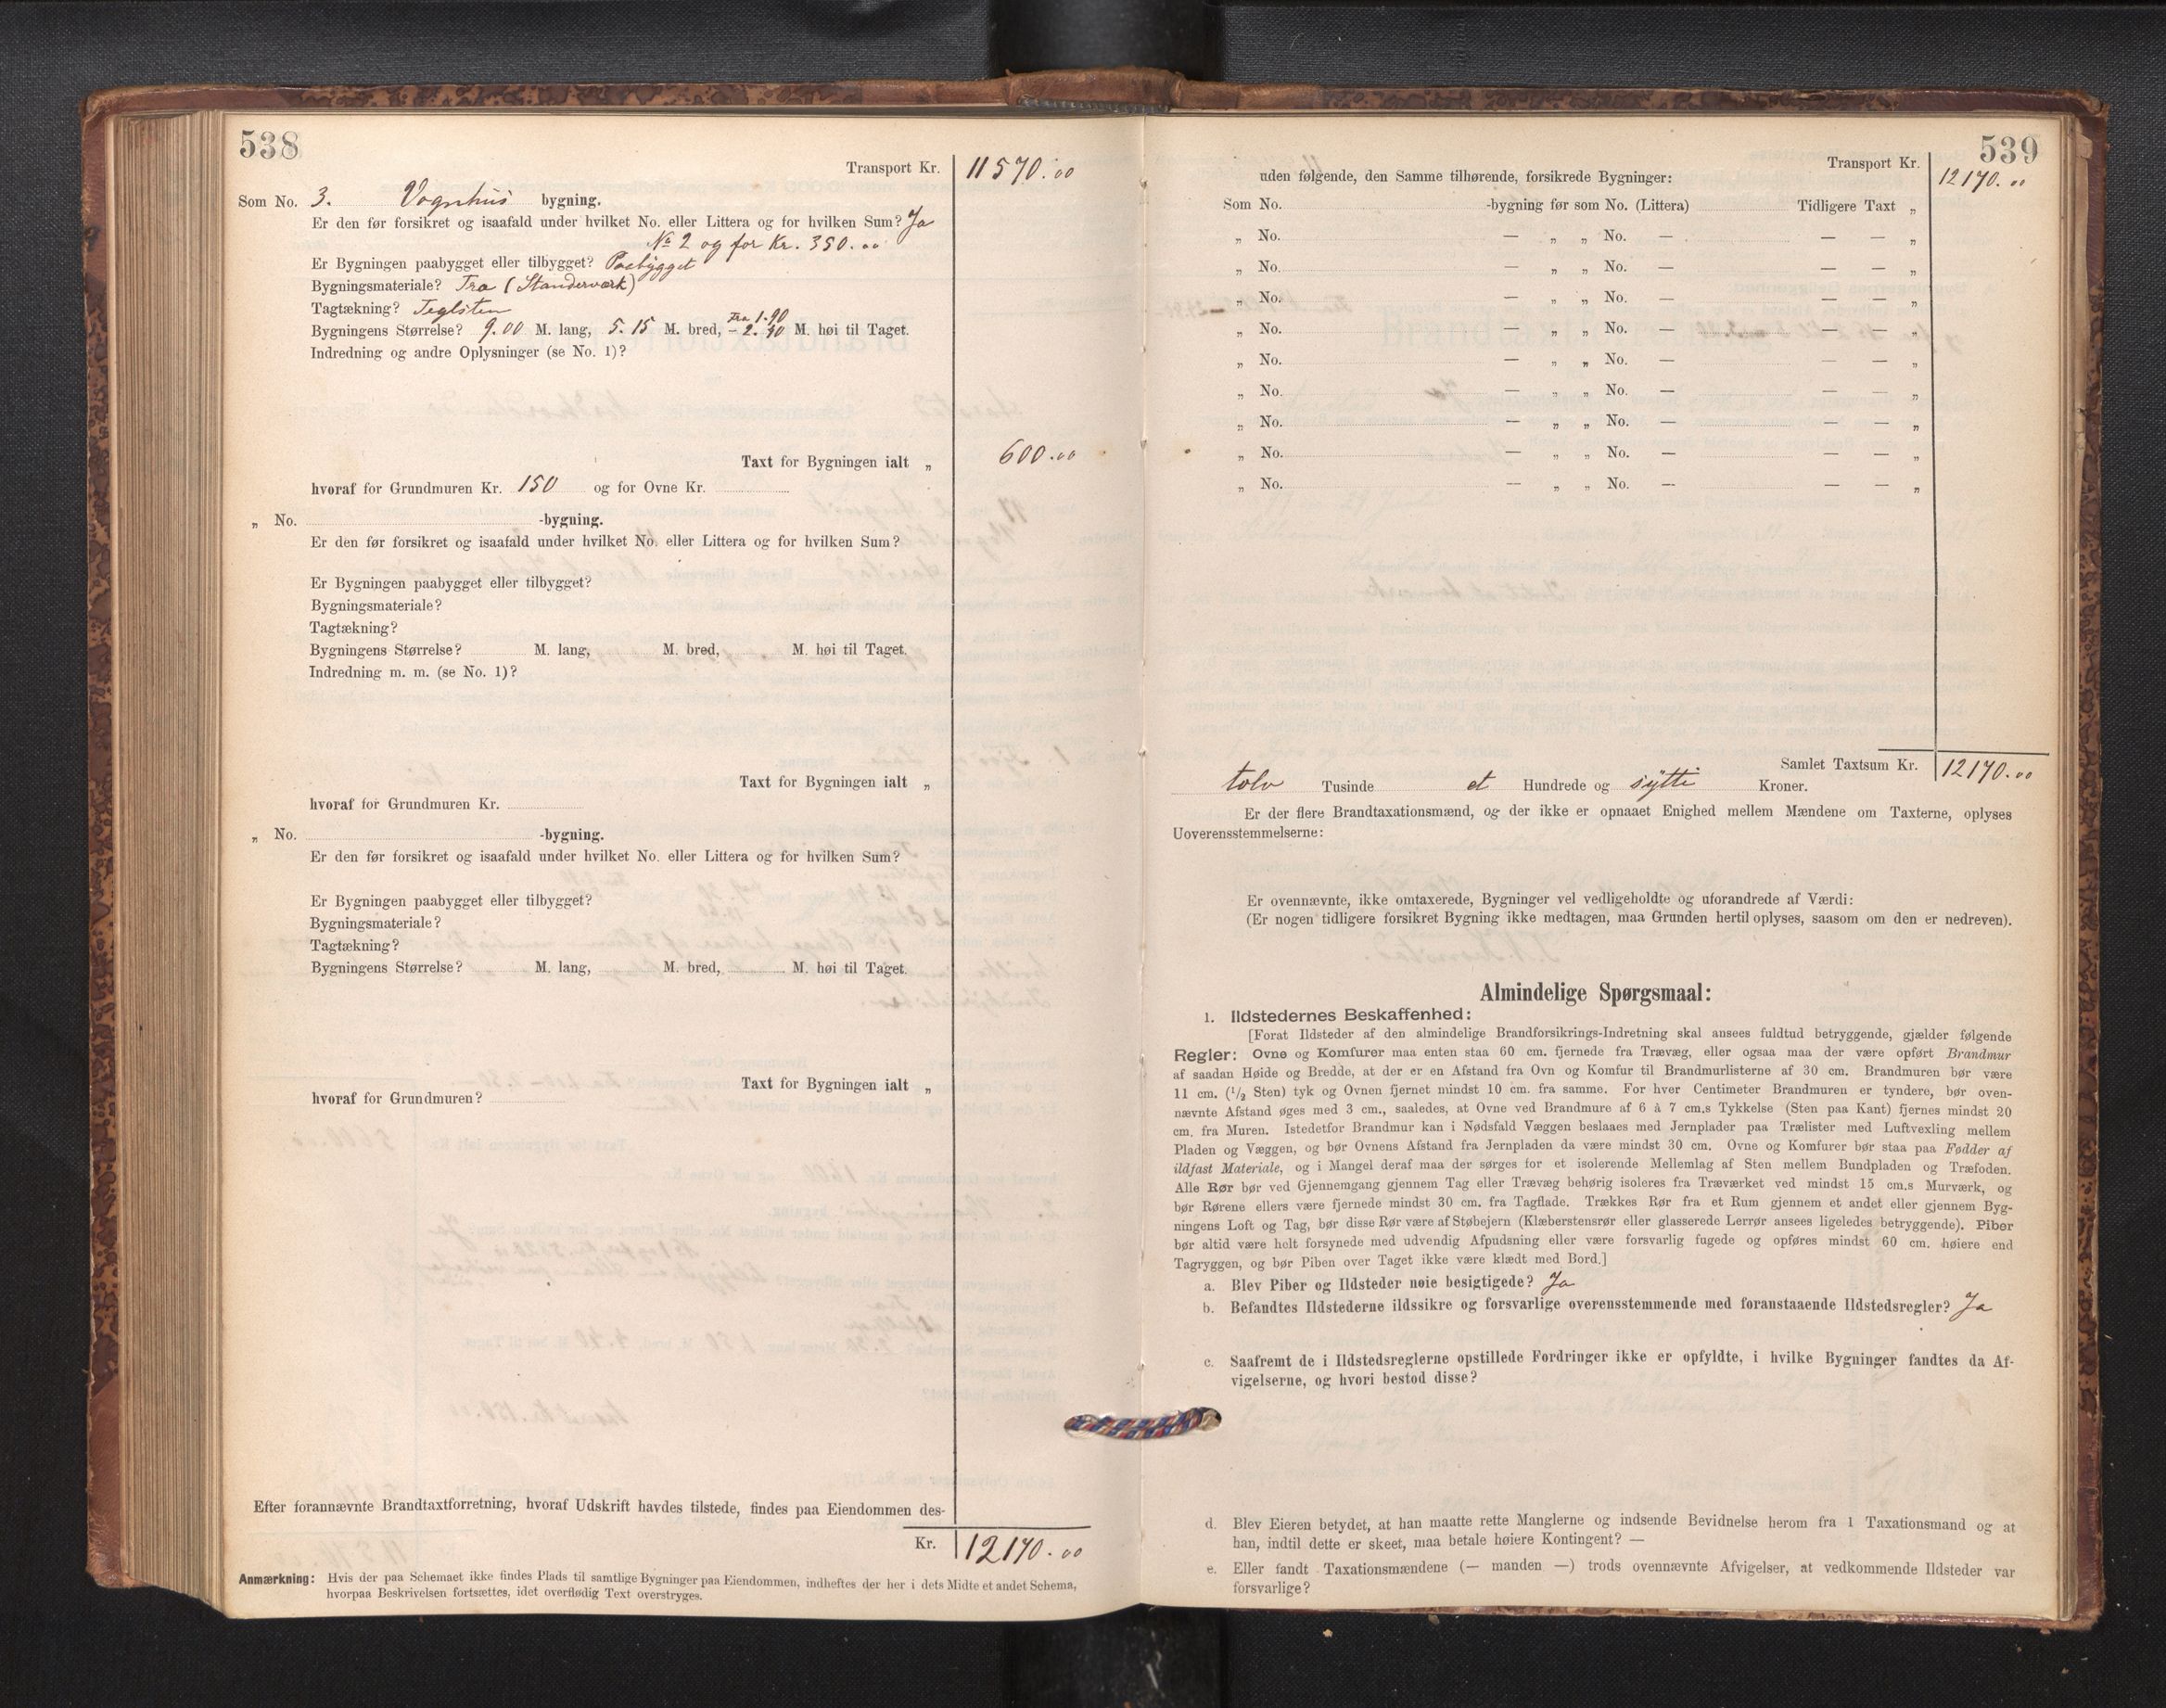 538
Transport Kr. 11570.00
Som No. 3. Vognhus bygning.
Er den før forsikret og isaafald under hvilket No. eller Littera og for hvilken Sum? Ja
No 2 og for Kr. 350.00
Er Bygningen paabygget eller tilbygget? Paabygget
Bygningsmateriale? Træ (Standerværk)
Tagtækning? Teglsten
Bygningens Størrelse? 9.00 M. lang, 5.15 M. bred, Fra 1.90 – 2.40 M. høi til Taget.
Indredning og andre Oplysninger (se No. 1)?
Taxt for Bygningen ialt „ 600.00
hvoraf for Grundmuren Kr. 150 og for Ovne Kr.
„ No. -bygning.
Er den før forsikret og isaafald under hvilket No. eller Littera og for hvilken Sum?
Er Bygningen paabygget eller tilbygget?
Bygningsmateriale?
Tagtækning?
Bygningens Størrelse? M. lang, M. bred, M. høi til Taget.
Indredning m. m. (se No. 1)?
Taxt for Bygningen ialt „
hvoraf for Grundmuren Kr.
„ No. -bygning.
Er den før forsikret og isaafald under hvilket No. eller Littera og for hvilken Sum?
Er Bygningen paabygget eller tilbygget?
Bygningsmateriale?
Tagtækning?
Bygningens Størrelse? M. lang, M. bred, M. høi til Taget.
Taxt for Bygningen ialt „
hvoraf for Grundmuren?
Efter forannævnte Brandtaxtforretning, hvoraf Udskrift havdes tilstede, findes paa Eiendommen des-
Kr. 12170.00
Anmærkning: Hvis der paa Schemaet ikke findes Plads til samtlige Bygninger paa Eiendommen, indheftes der her i dets Midte et andet Schema,
hvorpaa Beskrivelsen fortsættes, idet overflødig Text overstryges.
539
Transport Kr. 12170.00
uden følgende, den Samme tilhørende, forsikrede Bygninger:
Som No. -bygning før som No. (Littera) Tidligere Taxt „
„ No. — „ „ No. — — — „
„ No. — „ „ No. — — — „
„ No. — „ „ No. — — — „
„ No. — „ „ No. — — — „
„ No. — „ „ No. — — — „
„ No. — „ „ No. — — — „
„ No. — „ „ No. — — — „
„ No. — „ „ No. — — — „
„ No. — „ „ No. — — — „
Samlet Taxtsum Kr. 12170.00
tolv Tusinde et Hundrede og sytti Kroner.
Er der flere Brandtaxationsmænd, og der ikke er opnaaet Enighed mellem Mændene om Taxterne, oplyses
Uoverensstemmelserne:
Er ovennævnte, ikke omtaxerede, Bygninger vel vedligeholdte og uforandrede af Værdi:
(Er nogen tidligere forsikret Bygning ikke medtagen, maa Grunden hertil oplyses, saasom om den er nedreven).
Almindelige Spørgsmaal:
1. Ildstedernes Beskaffenhed:
[Forat Ildsteder af den almindelige Brandforsikrings-Indretning skal ansees fuldtud betryggende, gjælder følgende
Regler: Ovne og Komfurer maa enten staa 60 cm. fjernede fra Trævæg, eller ogsaa maa der være opført Brandmur
af saadan Høide og Bredde, at der er en Afstand fra Ovn og Komfur til Brandmurlisterne af 30 cm. Brandmuren bør være
11 cm. (1/2 Sten) tyk og Ovnen fjernet mindst 10 cm. fra samme. For hver Centimeter Brandmuren er tyndere, bør oven-
nævnte Afstand øges med 3 cm., saaledes, at Ovne ved Brandmure af 6 à 7 cm.s Tykkelse (Sten paa Kant) fjernes mindst 20
cm. fra Muren. Istedetfor Brandmur kan i Nødsfald Væggen beslaaes med Jernplader paa Trælister med Luftvexling mellem
Pladen og Væggen, og bør Ovnens Afstand fra Jernpladen da være mindst 30 cm. Ovne og Komfurer bør staa paa Fødder af
ildfast Materiale, og i Mangel deraf maa der sørges for et isolerende Mellemlag af Sten mellem Bundpladen og Træfoden.
Alle Rør bør ved Gjennemgang gjennem Tag eller Trævæg behørig isoleres fra Træværket ved mindst 15 cm.s Murværk, og
bør Rørene ellers være fjernede mindst 30 cm. fra Tagflade. Trækkes Rør fra et Rum gjennem et andet eller gjennem Byg-
ningens Loft og Tag, bør disse Rør være af Støbejern (Klæberstensrør eller glasserede Lerrør ansees ligeledes betryggende). Piber
bør altid være helt forsynede med udvendig Afpudsning eller være forsvarlig fugede og opføres mindst 60 cm. høiere end
Tagryggen, og bør Piben over Taget ikke være klædt med Bord.]
a. Blev Piber og Ildsteder nøie besigtigede? Ja
b. Befandtes Ildstederne ildssikre og forsvarlige overensstemmende med foranstaaende Ildstedsregler? Ja
c. Saafremt de i Ildstedsreglerne opstillede Fordringer ikke er opfyldte, i hvilke Bygninger fandtes da Af-
vigelserne, og hvori bestod disse?
d. Blev Eieren betydet, at han maatte rette Manglerne og indsende Bevidnelse herom fra 1 Taxationsmand og at
han, indtil dette er skeet, maa betale høiere Kontingent? —
e. Eller fandt Taxationsmændene (— manden —) trods ovennævnte Afvigelser, at vedkommende Ildsteder var
forsvarlige?